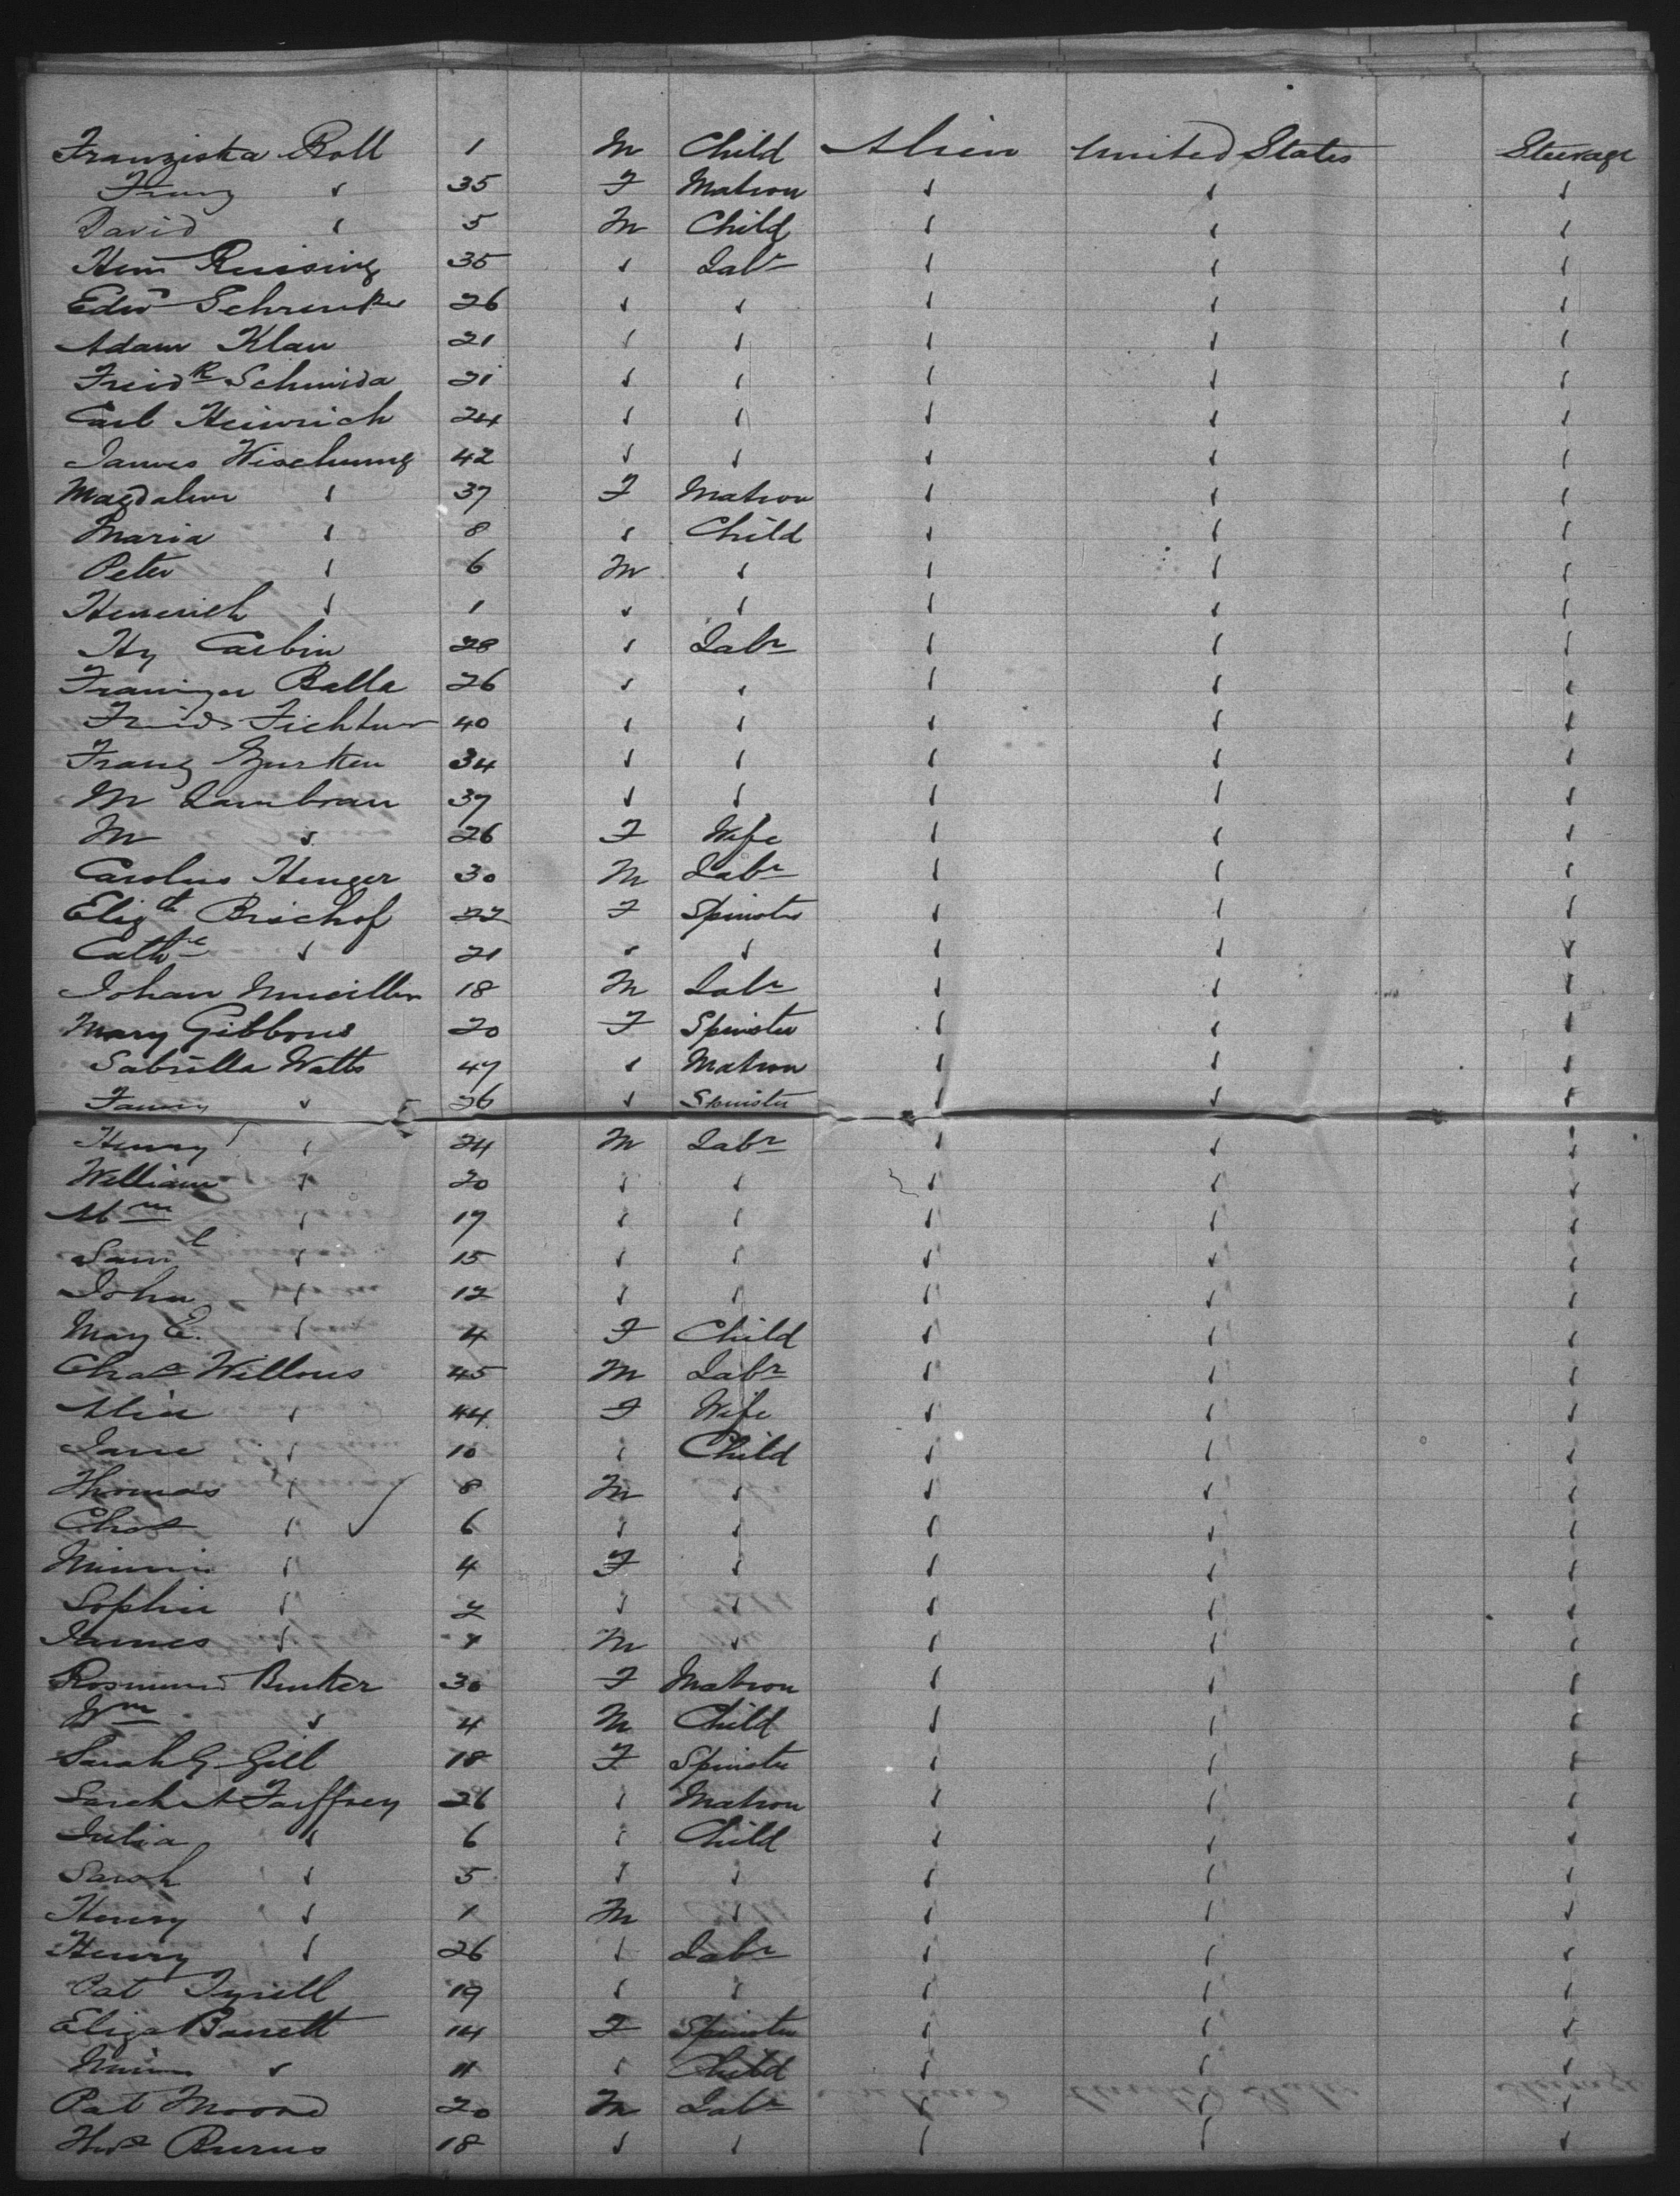 Franziska Roll 1 M Child Alien United States Steerage
Franz " 35 F Matron " " "
David " 5 M Child " " "
Hein Reissing 35 " Labr " " "
Edwd Schrenke 26 " " " " "
Adam Klau 21 " " " " "
Freidk Schmida 21 " " " " "
Carl Heinrich 24 " " " " "
James Wischung 42 " " " " "
Magdalen " 37 F Matron " " "
Maria " 8 " Child " " "
Peter " 6 M " " " "
Heinrich " 1 " " " " "
Hy Carbin 28 " Labr " " "
Balla 26 " " " " "
Fichtner 40 " " " " "
Franz 34 " " " " "
M Lambran 37 " " " " "
M " 26 F Wife " " "
Carolus Henger 30 M Labr " " "
Elizth Bischof 22 F Spinster " " "
Cathe " 21 " " " " "
Johan Mueiller 18 M Labr " " "
Mary Gibbons 20 F Spinster " " "
Sabrilla Watts 47 " Matron " " "
Fanny " 26 " Spinster " " "
Henry " 24 M Labr " " "
William " 20 " " " " "
" 17 " " " " "
Saml " 15 " " " " "
John " 12 " " " " "
Mary E. " 4 F Child " " "
Chas Willows 45 M Labr " " "
Alice " 44 F Wife " " "
Jane " 10 " Child " " "
Thomas " 8 M " " " "
Chas " 6 " " " " "
Minnie " 4 F " " " "
Sophie " 2 " " " " "
James " 1 M " " " "
Rosmund Bunker 30 F Matron " " "
Wm " 4 M Child " " "
Sarah G Gill 18 F Spinster " " "
Sarah A Farffrey 26 " Matron " " "
Julia " 6 " Child " " "
Sarah " 5 " " " " "
Henry " 1 M " " " "
Henry " 26 " Labr " " "
Pat Tyrell 19 " " " " "
Eliza Barrett 14 F Spinster " " "
" 11 " Child " " "
Pat Moore 20 M Labr " " "
Thos Burns 18 " " " " "